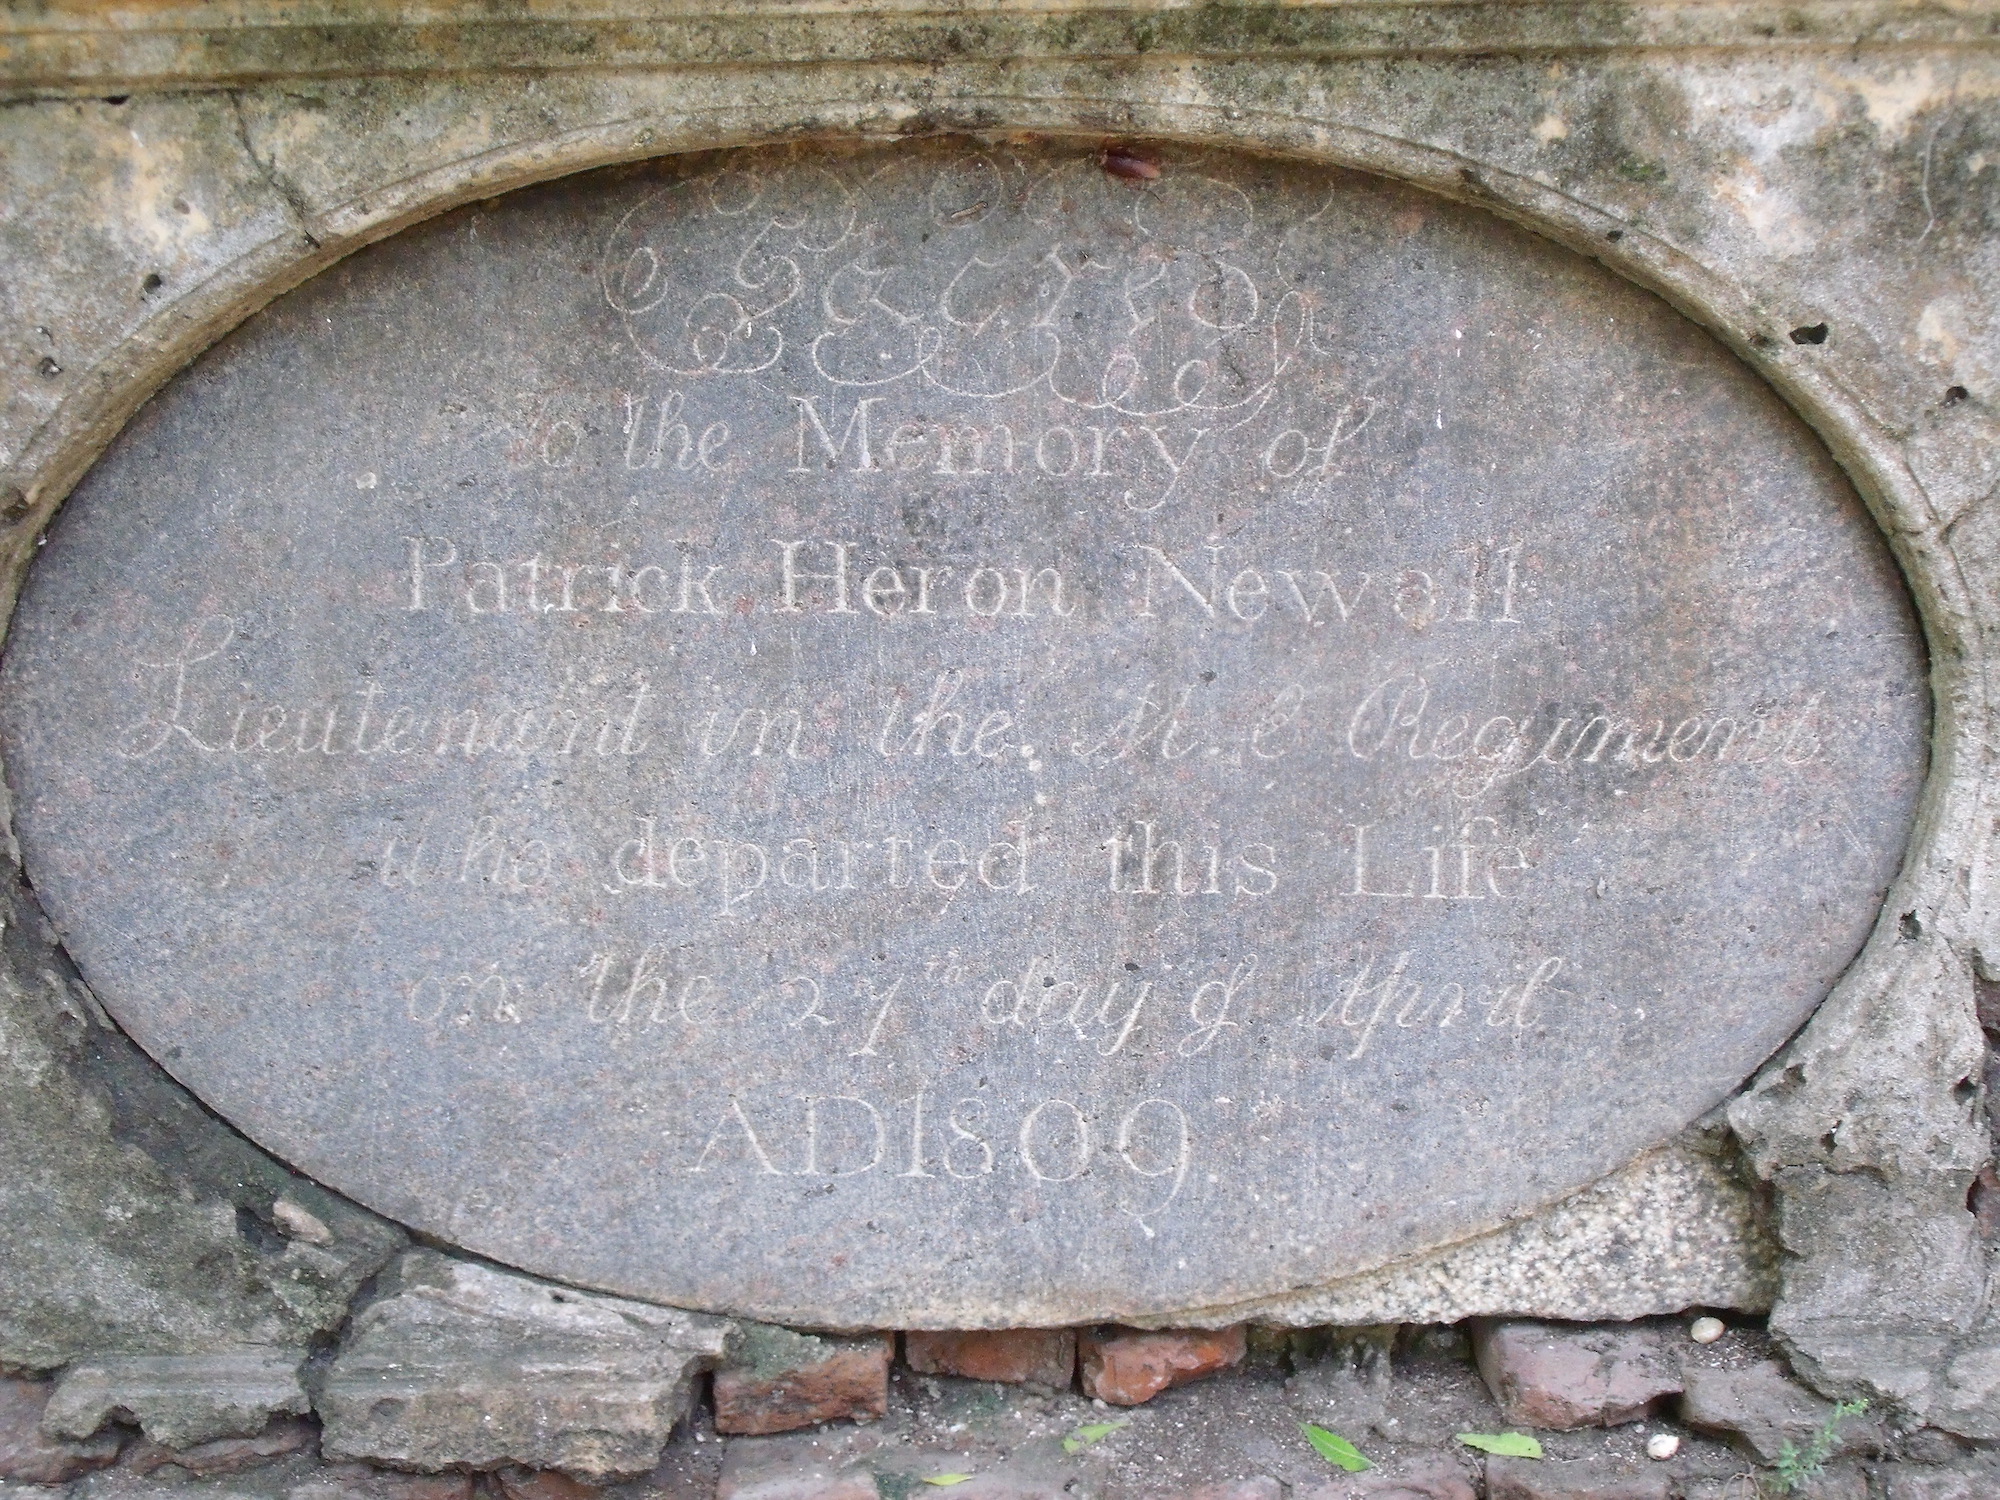 Sacred
To the Memory of
Patrick Heron Newall
Lieutenant in the M. E Regiment
who departed this Life
on the 27th day of April
AD 1809